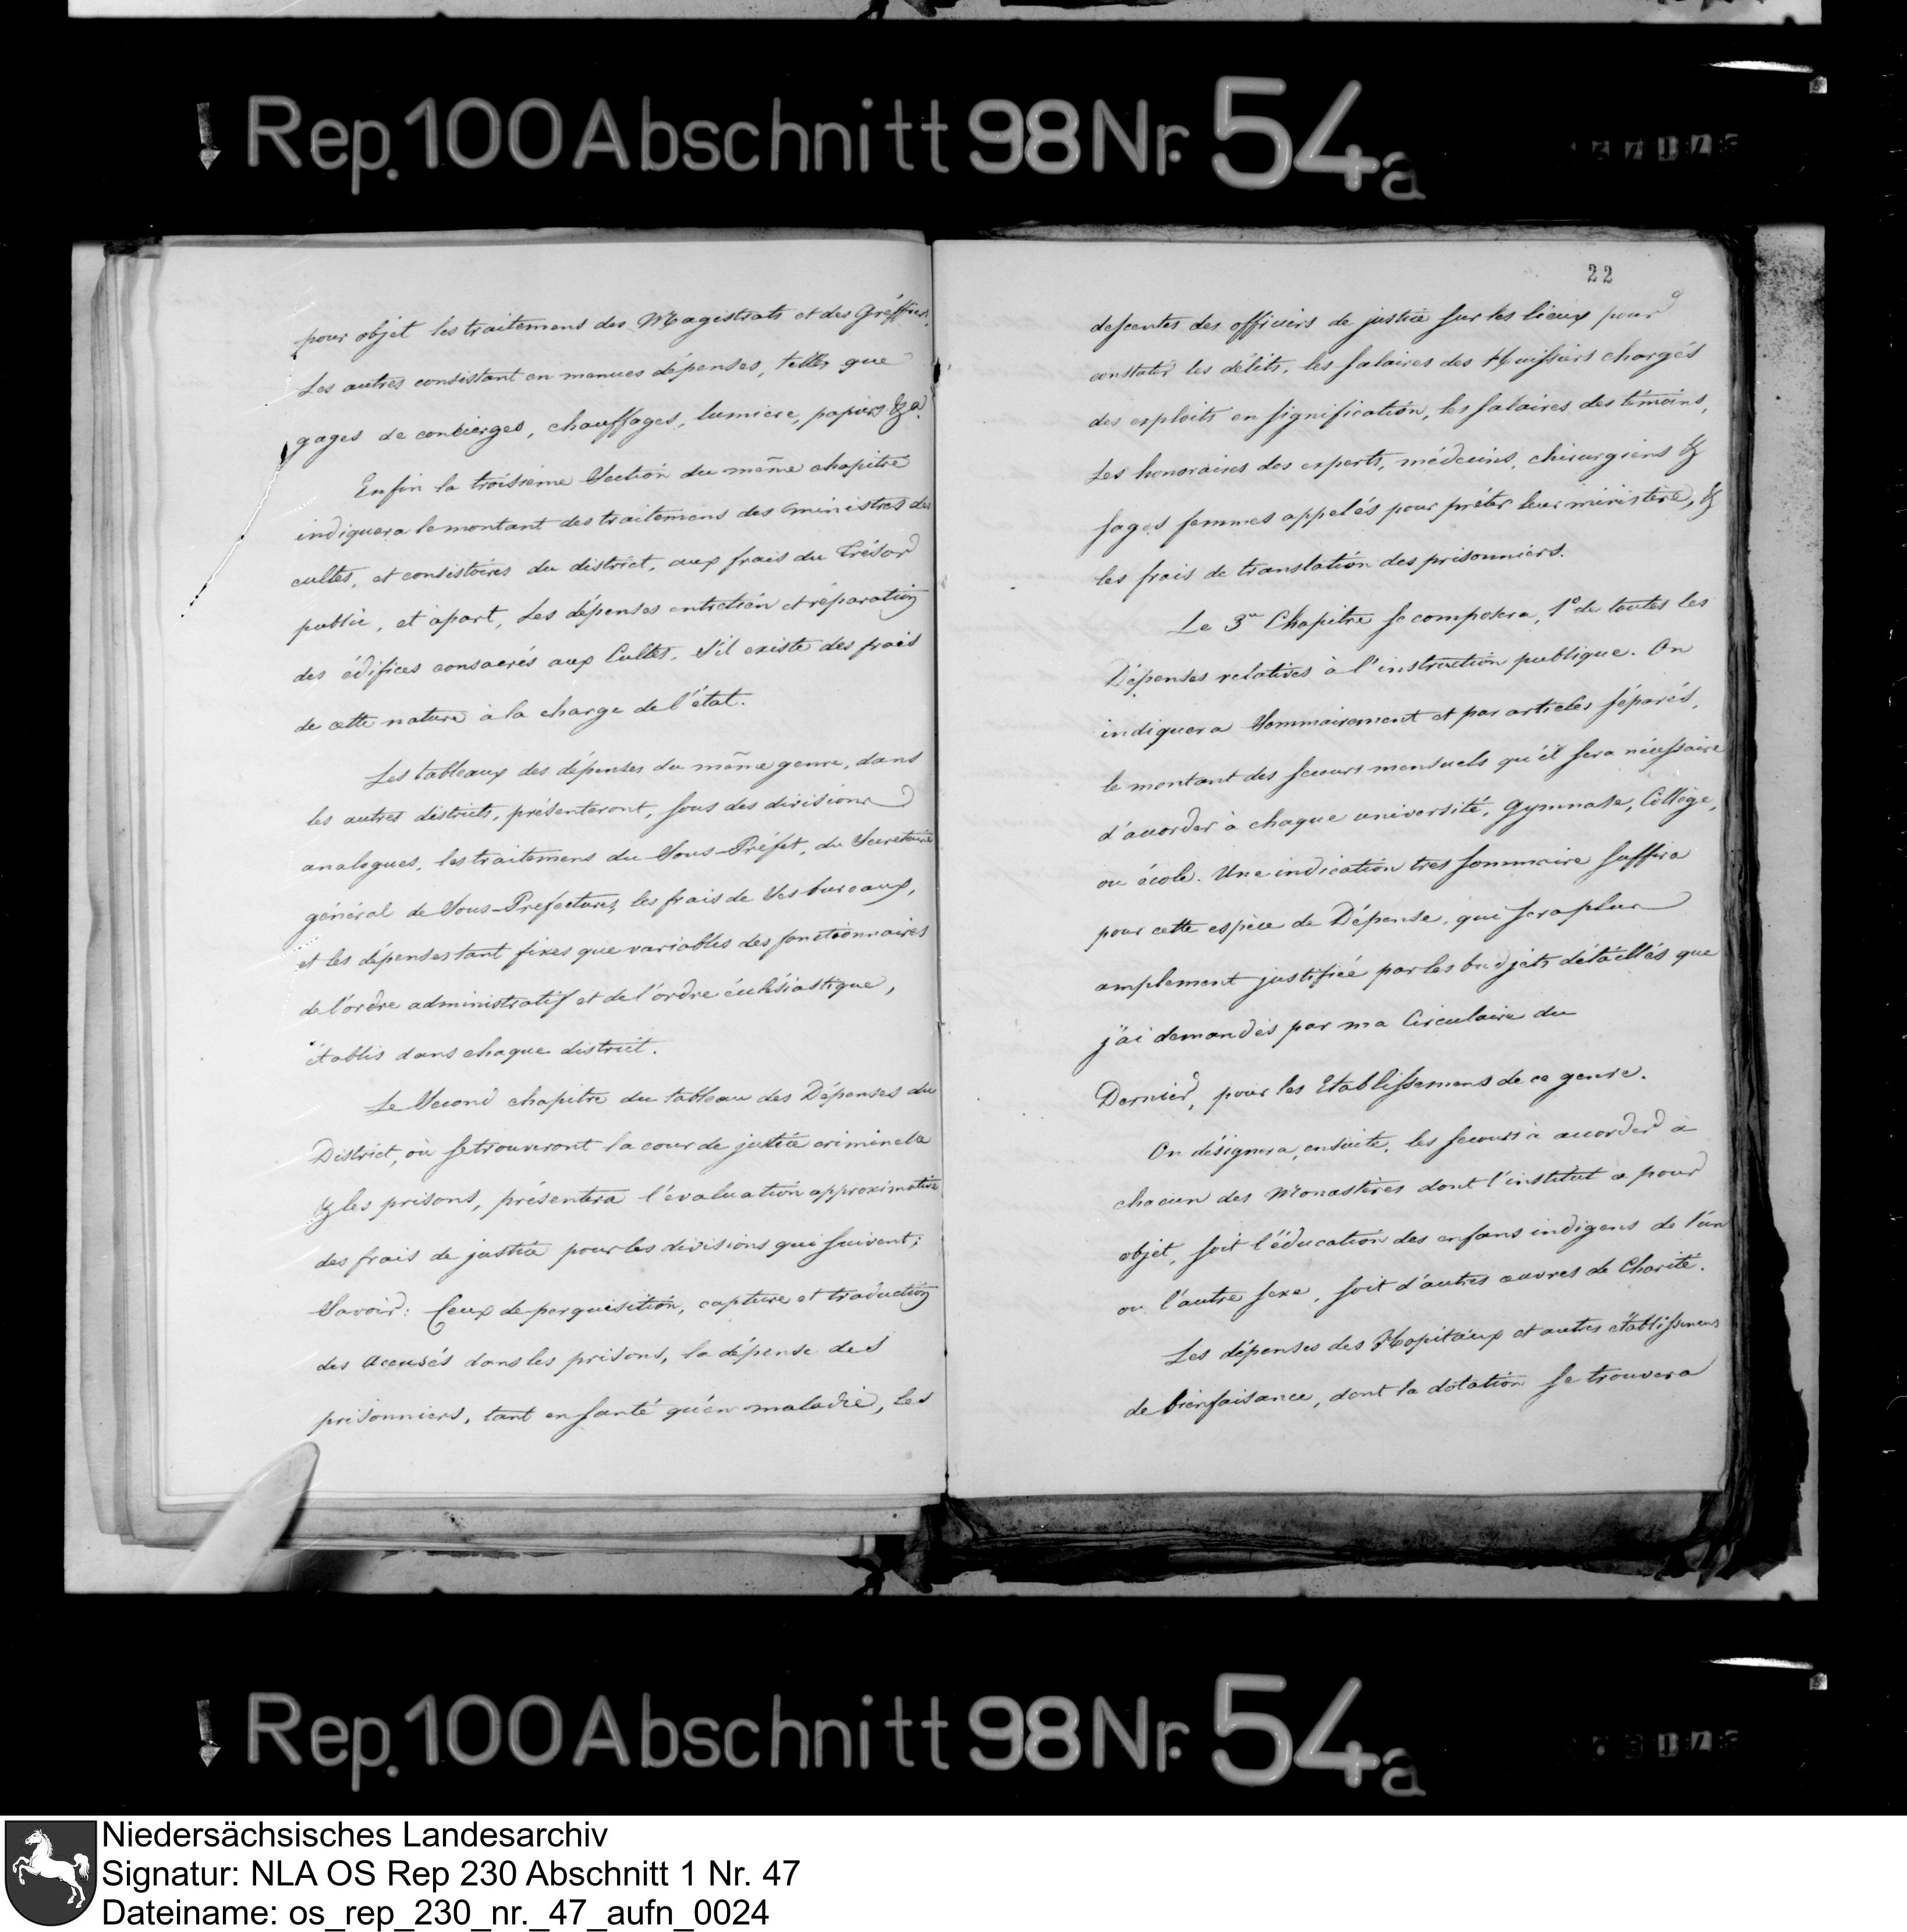 Rep. 100 Abschnitt 98 Nr. 54a
pour objet les traitemens des Magistrats et des Gréffiers.
Les autres consistant en menues dépenses, telles que
gages de concierges, chauffages, lumiere, papiers &a.
Enfin la troisième Section du même chapitre
indiquera le montant des traitemens des ministres des
cultes, et consistoires du district, aux frais du Trésor
public, et àpart, Les dépenses entretien et réparation
des édifices consacrés aux Cultes, S'il existe des frais
de cette nature à la charge de l'état.
Les tableaux des dépenses du même genre, dans
les autres districts, présenteront, sous des divisions
analogues, les traitemens du Sous-Préfet, du Secretaire
général de Sous-Prefecture, les frais de Ses bureaux,
et les dépenses tant fixes que variables des fonctionnaires
de l'ordre administratif et de l'ordre écclésiastique,
établis dans chaque district.
Le Second chapitre du tableau des Dépenses du
District, où se trouveront la cour de justice criminelle
& les prisons, présentera l'évaluation approximative
des frais de justice pour les divisions qui suivent;
Savoir: Ceux de perquisition, capture et traduction
des accusés dans les prisons, la dépense des
prisonniers, tant en santé qu'en maladie, les
22
descentes des officiers de justice sur les lieux pour
constater les délits, les salaires des Huissiers chargés
des exploits en signification, les salaires des témoins,
Les honoraires des experts, médecins, chirurgiens &
sages femmes appelés pour prêter leur ministère, &
les frais de translation des prisonniers.
Le 3me Chapitre se composera, 1° de toutes les
Dépenses relatives à l'instruction publique. On
indiquera Sommairement et par articles séparés,
le montant des secours mensuels qu'il sera nécessaire
d'accorder à chaque université, Gymnase, Collège,
ou école. Une indication tres sommaire suffira
pour cette espèce de Dépense, qui sera plus
amplement justifiée par les budjets détaillés que
j'ai demandés par ma Circulaire du
Dernier, pour les Etablissemens de ce genre.
On désignera, ensuite, les secours à accorder à
chacun des Monastères dont l'institut a pour
objet, soit l'éducation des enfans indigens de l'un
ou l'autre sexe, soit d'autres œuvres de Charité.
Les dépenses des Hopitaux et autres établissemens
de bienfaisance, dont la dotation se trouvera
Rep. 100 Abschnitt 98 Nr. 54a
Niedersächsisches Landesarchiv
Signatur: NLA OS Rep 230 Abschnitt 1 Nr. 47
Dateiname: os_rep_230_nr._47_aufn_0024